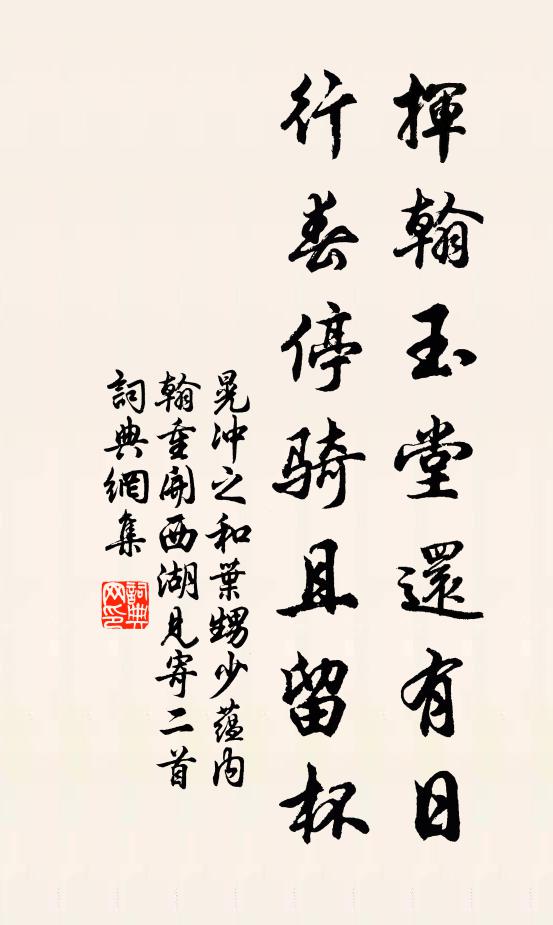 揮翰玉堂還有日
行春停騎且留杯
晁沖之和葉甥少蘊內
翰重開西湖見寄二首
詞典網集
詞典网印